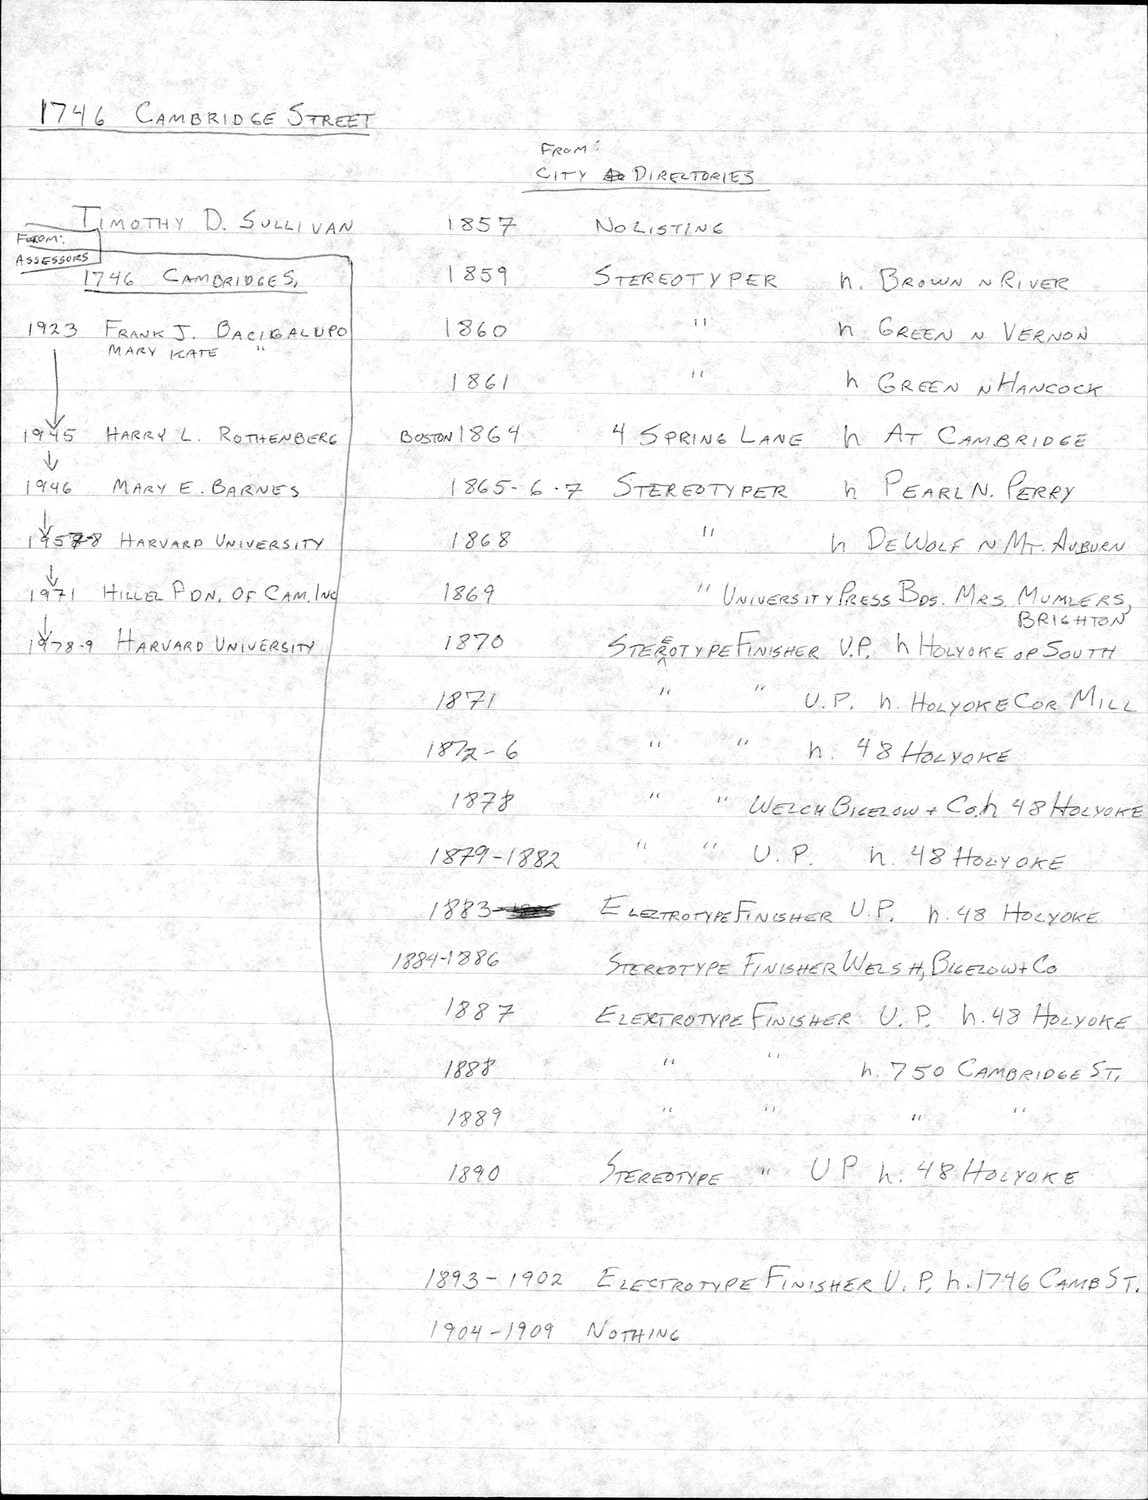 1746 CAMBRIDGE STREET
FROM:
CITY DIRECTORIES
TIMOTHY D. SULLIVAN 1857 NO LISTING
FROM:
ASSESSORS
1746 CAMBRIDGE S,
1859 STEREOTYPER h. BROWN N RIVER
1923 FRANK J. BACIGALUPO
MARY KATE "
1860 " h GREEN N VERNON
1861 " h GREEN N HANCOCK
1945 HARRY L. ROTHENBERG
BOSTON 1864 4 SPRING LANE h AT CAMBRIDGE
1946 MARY E. BARNES
1865-6-7 STEREOTYPER h PEARL N. PERRY
1957-8 HARVARD UNIVERSITY
1868 " h DEWOLF N MT. AUBURN
1971 HILLEL FDN. OF CAM. INC
1869 " UNIVERSITY PRESS BDS. MRS MUMLERS,
BRIGHTON
1978-9 HARVARD UNIVERSITY
1870 STEREOTYPE FINISHER U.P. h HOLYOKE OP SOUTH
1871 " " U.P. h. HOLYOKE COR MILL
1872-6 " " h. 48 HOLYOKE
1878 " " WELCH BIGELOW + CO. h 48 HOLYOKE
1879-1882 " " U.P. h. 48 HOLYOKE
1883 ELECTROTYPE FINISHER U.P. h. 48 HOLYOKE
1884-1886 STEREOTYPE FINISHER WELSH, BIGELOW + CO
1887 ELECTROTYPE FINISHER U.P. h. 48 HOLYOKE
1888 " " h. 750 CAMBRIDGE ST.
1889 " " " "
1890 STEREOTYPE " UP h. 48 HOLYOKE
1893-1902 ELECTROTYPE FINISHER U.P. h. 1746 CAMB ST.
1904-1909 NOTHING